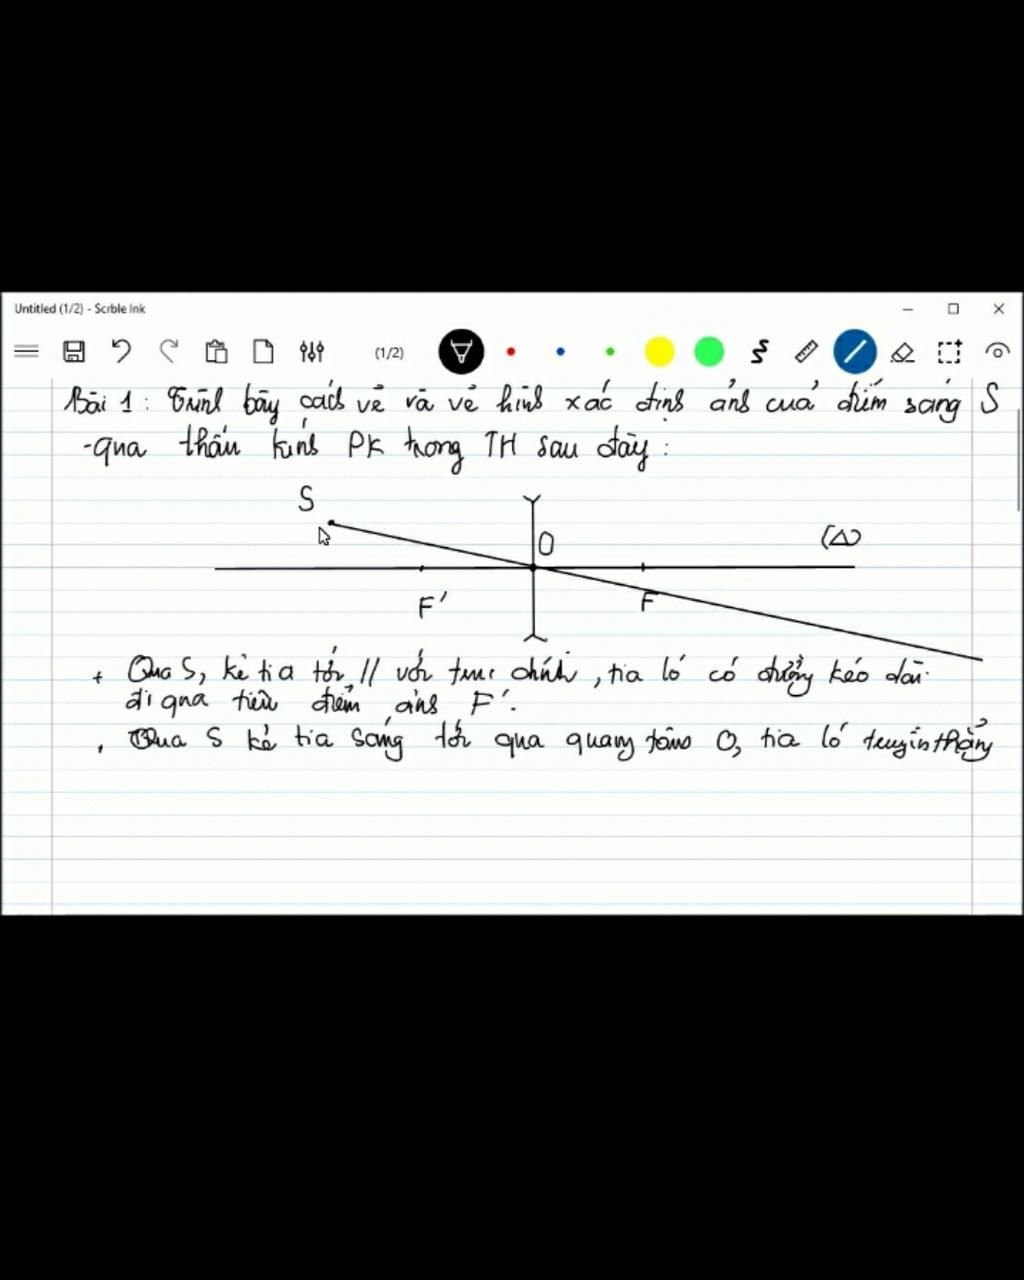 Untitled (1/2) - Scrble Ink
(1/2)
Bài 1 : Trình bày cách vẽ và vẽ hình xác định ảnh của điểm sáng S
-qua thấu kính PK trong TH sau đây :
S
O
(Δ)
F'
F
+ Qua S, kẻ tia tới // với trục chính, tia ló có đường kéo dài
đi qua tiêu điểm ảnh F'.
, Qua S kẻ tia sáng tới qua quang tâm O, tia ló truyền thẳng